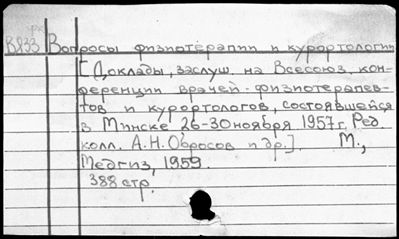 В833 Вопросы физиотерапии и курортологии
[Доклады, заслуш. на Всесоюз. кон-
ференции врачей-физиотерапев-
тов и курортологов, состоявшейся
в Минске 26-30 ноября 1957 г. Ред.
колл. А.Н. Обросов и др.]. М.,
Медгиз, 1959.
388 стр.